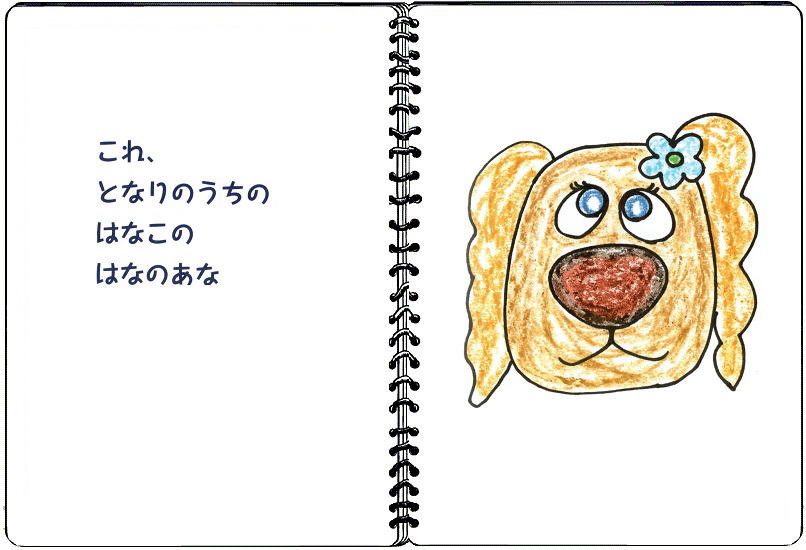 これ、
となりのうちの
はなこの
はなのあな